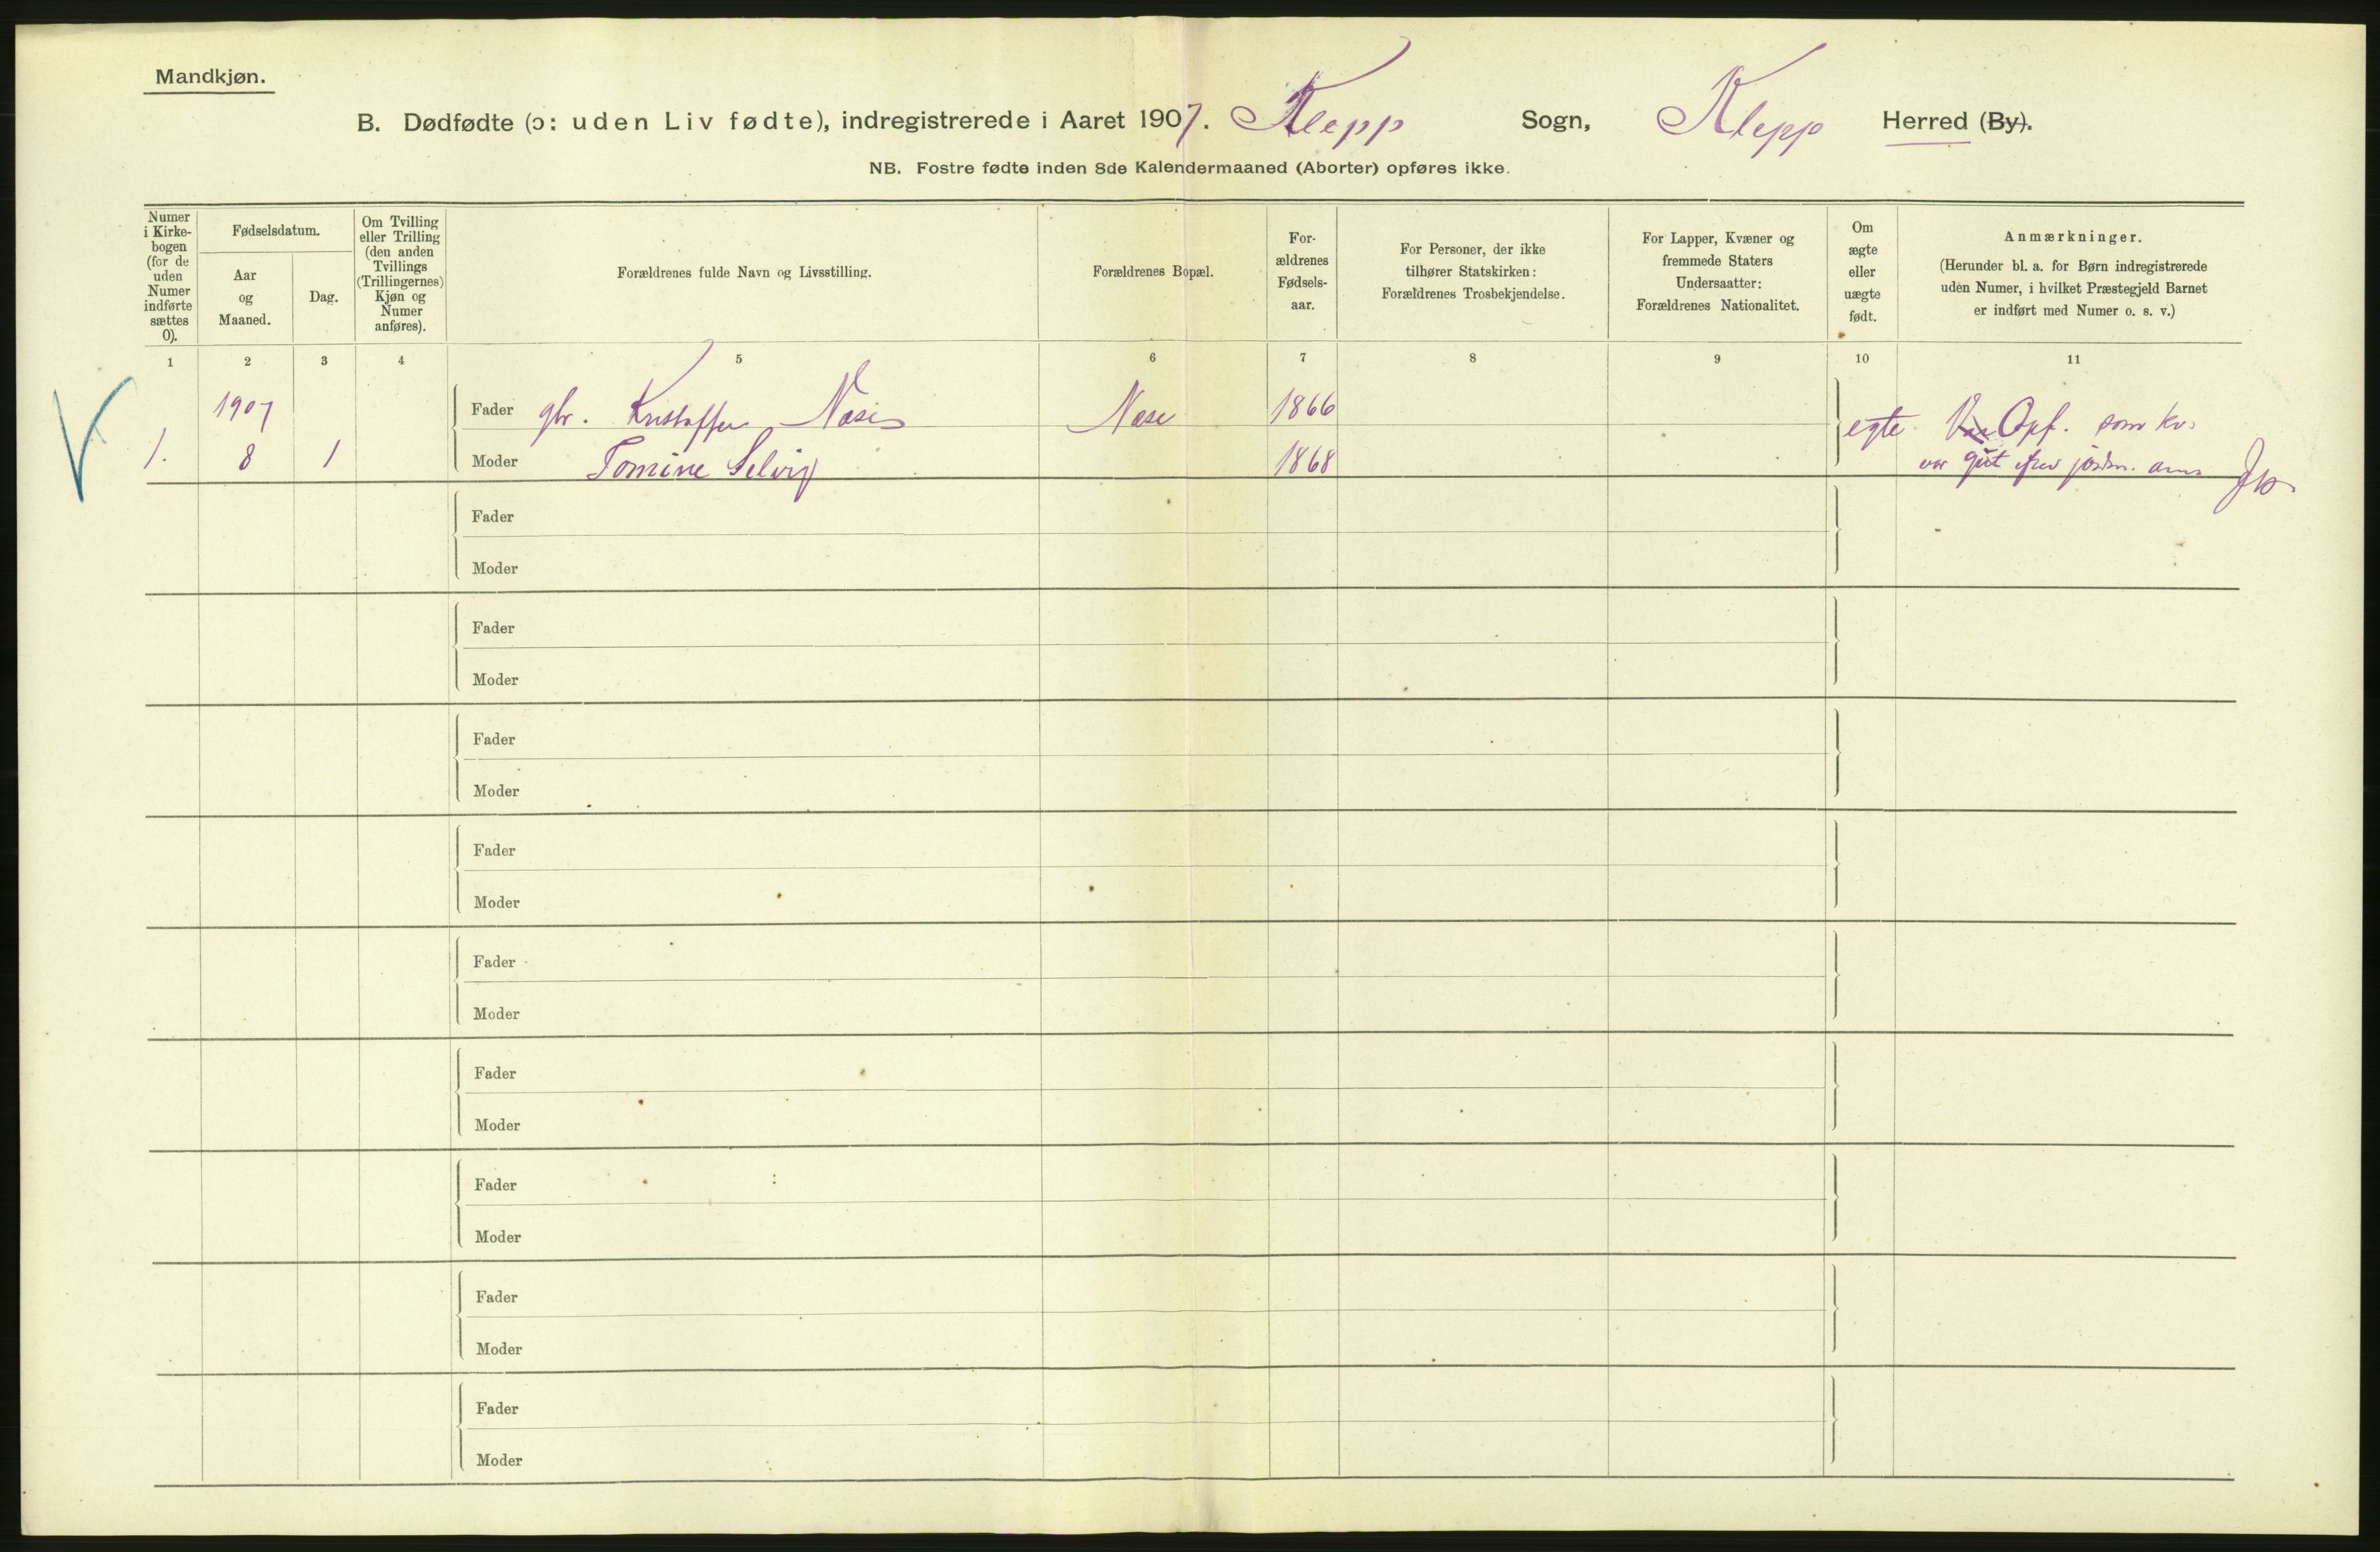 Mandkjøn.
B. Dødfødte (ɔ: uden Liv fødte), indregistrerede i Aaret 1907. Klepp Sogn, Klepp Herred (By).
NB. Fostre fødte inden 8de Kalendermaaned (Aborter) opføres ikke.
Numer
i Kirke-
bogen
(for de
uden
Numer
indførte
sættes
0).
Fødselsdatum.
Aar
og
Maaned.
Dag.
Om Tvilling
eller Trilling
(den anden
Tvillings
(Trillingernes)
Kjøn og
Numer
anføres).
Forældrenes fulde Navn og Livsstilling.
Forældrenes Bopæl.
For-
ældrenes
Fødsels-
aar.
For Personer, der ikke
tilhører Statskirken:
Forældrenes Trosbekjendelse.
For Lapper, Kvæner og
fremmede Staters
Undersaatter:
Forældrenes Nationalitet.
Om
ægte
eller
uægte
født.
Anmærkninger.
(Herunder bl. a. for Børn indregistrerede
uden Numer, i hvilket Præstegjeld Barnet
er indført med Numer o. s. v.)
1 2 3 4 5 6 7 8 9 10 11
1907 Fader gbr. Kristoffer Næse Næse 1866
egte Opf. som kv.
1. 8 1 Moder Tomine Selvig 1868
var gut efter jordm.
Fader
Moder
Fader
Moder
Fader
Moder
Fader
Moder
Fader
Moder
Fader
Moder
Fader
Moder
Fader
Moder
Fader
Moder